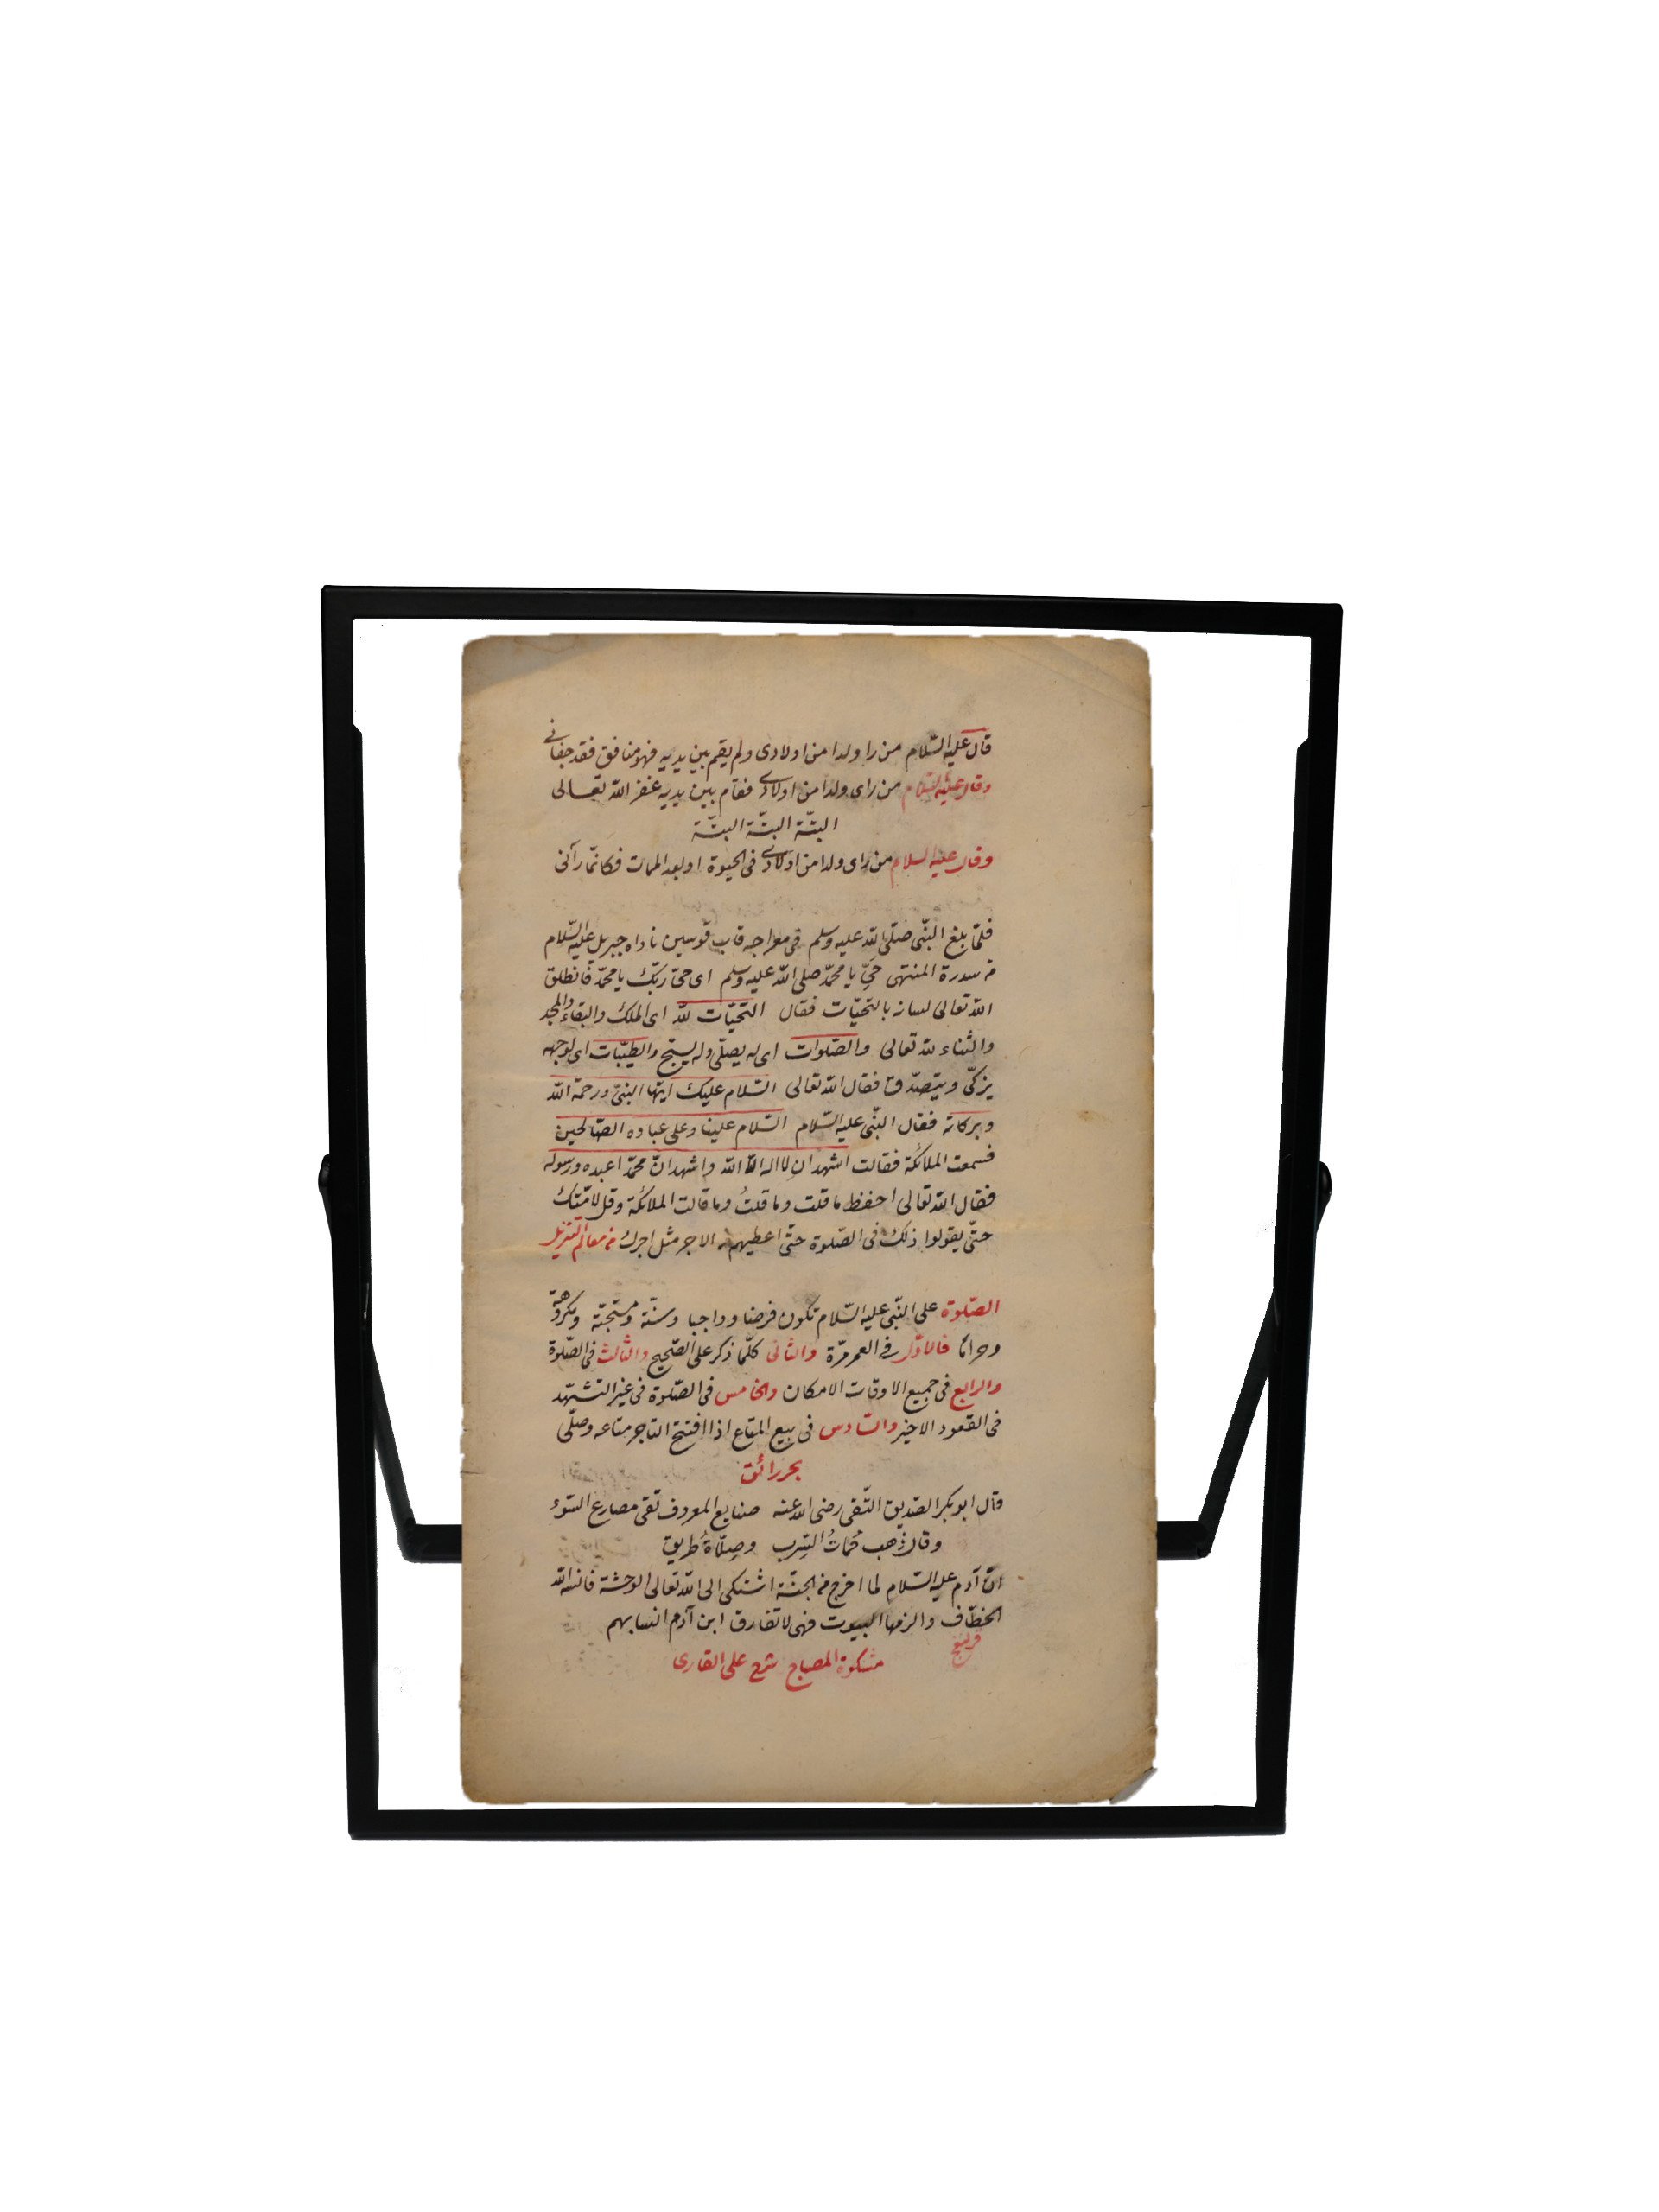 قال عليه السّلام من را ولدا من اولادى ولم يقم بين يديه فهو منافق فقد جفانى
وقال عليه السّلام من راى ولدا من اولادى فقام بين يديه غفر اللّه تعالى
البتّة البتّة البتّة
وقال عليه السلام من راى ولدا من اولادى فى الحيوة او بعد الممات فكانّما رآنى
فلمّا بلغ النبّى صلّى اللّه عليه وسلم فى معراجه قاب قوسين ناداه جبريل عليه السّلام
من سدرة المنتهى حىّ يا محمّد صلى اللّه عليه وسلم اى حىّ ربّك يا محمّد فانطلق
اللّه تعالى لسانه بالتحيّات فقال التحيّات للّه اى الملك والبقاء والمجد
والثناء للّه تعالى والصّلوات اى له يصلّى وله يسبّح والطيّبات اى لوجهه
يزكّى ويتصدّق فقال اللّه تعالى السّلام عليك ايّها النبىّ ورحمة اللّه
وبركاته فقال النبّى عليه السّلام السّلام علينا وعلى عباده الصّالحين
فسمعت الملائكة فقالت اشهد ان لا اله الّا اللّه واشهد انّ محمّدا عبده ورسوله
فقال اللّه تعالى احفظ ما قلت وما قلتُ وما قالت الملائكة وقل لامّتك
حتّى يقولوا ذلك فى الصّلوة حتّى اعطيهم من الاجر مثل اجرك من معالم التنزيل
الصّلوة على النبّى عليه السّلام تكون فرضا وواجبا وسنّة ومستحبّة ومكروهة
وحراما فالاوّل فى العمر مرّة والثانى كلّما ذكر على الصّحيح والثالث فى الصّلوة
والرابع فى جميع الاوقات الامكان والخامس فى الصّلوة فى غير التشهّد
فى القعود الاخير والسّادس فى بيع المتاع اذا افتتح التاجر متاعه وصلّى
بحر رائق
قال ابو بكر الصّديق التّقى رضى اللّه عنه صنايع المعروف تقى مصارع السّوء
وقال ذهب حُماتُ السِّرب وصِلاةُ طريق
انّ آدم عليه السّلام لما اخرج من الجنّة اشتكى الى اللّه تعالى الوحشة فانسه اللّه
الخطّاف والزمها البيوت فهى لا تفارق ابن آدم انسا بهم
مشكوة المصباح شرح على القارى